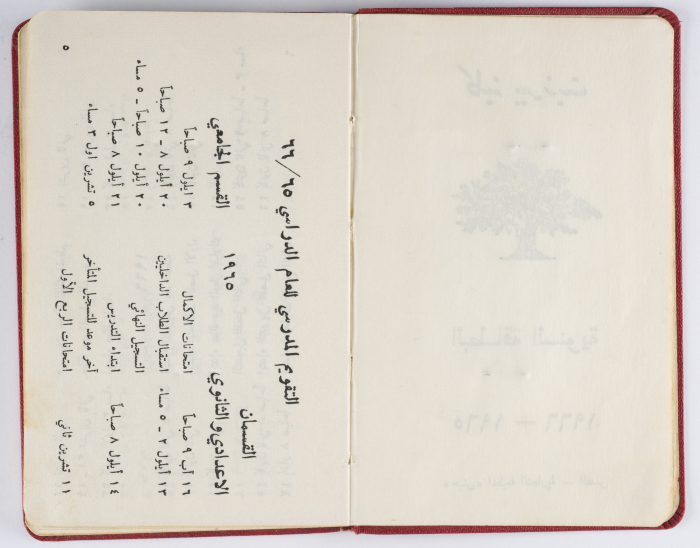 التقويم المدرسي للعام الدراسي ٦٥/٦٦
القسمان
الاعدادي والثانوي ١٩٦٥ القسم الجامعي
١٦ آب ٩ صباحاً امتحانات الاكمال ٣ ايلول ٩ صباحاً
١٣ أيلول ٢ – ٥ مساء استقبال الطلاب الداخليين ٢٠ أيلول ٨ – ١٢ صباحاً
التسجيل النهائي ٢٠ أيلول ١٠ صباحاً – ٥ مساء
١٤ أيلول ٨ صباحاً ابتداء التدريس ٢١ أيلول ٨ صباحاً
آخر موعد للتسجيل المتأخر ٥ تشرين اول ٣ مساء
١١ تشرين ثاني امتحانات الربع الأول
٥